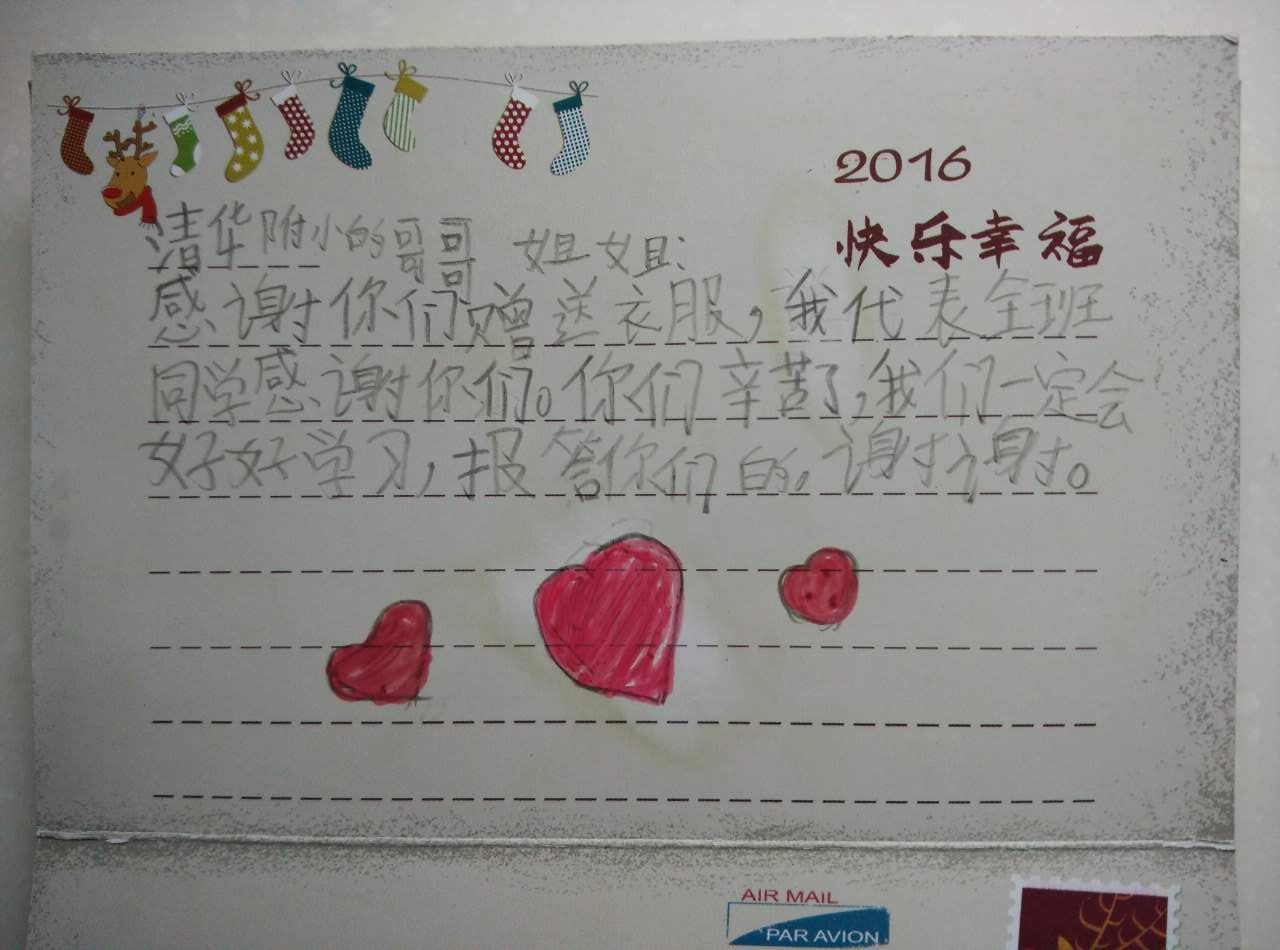 2016
快乐幸福
清华附小的哥哥 姐姐:
感谢你们赠送衣服，我代表全班
同学感谢你们。你们辛苦了，我们一定会
好好学习，报答你们的。谢谢谢谢。
AIR MAIL
PAR AVION